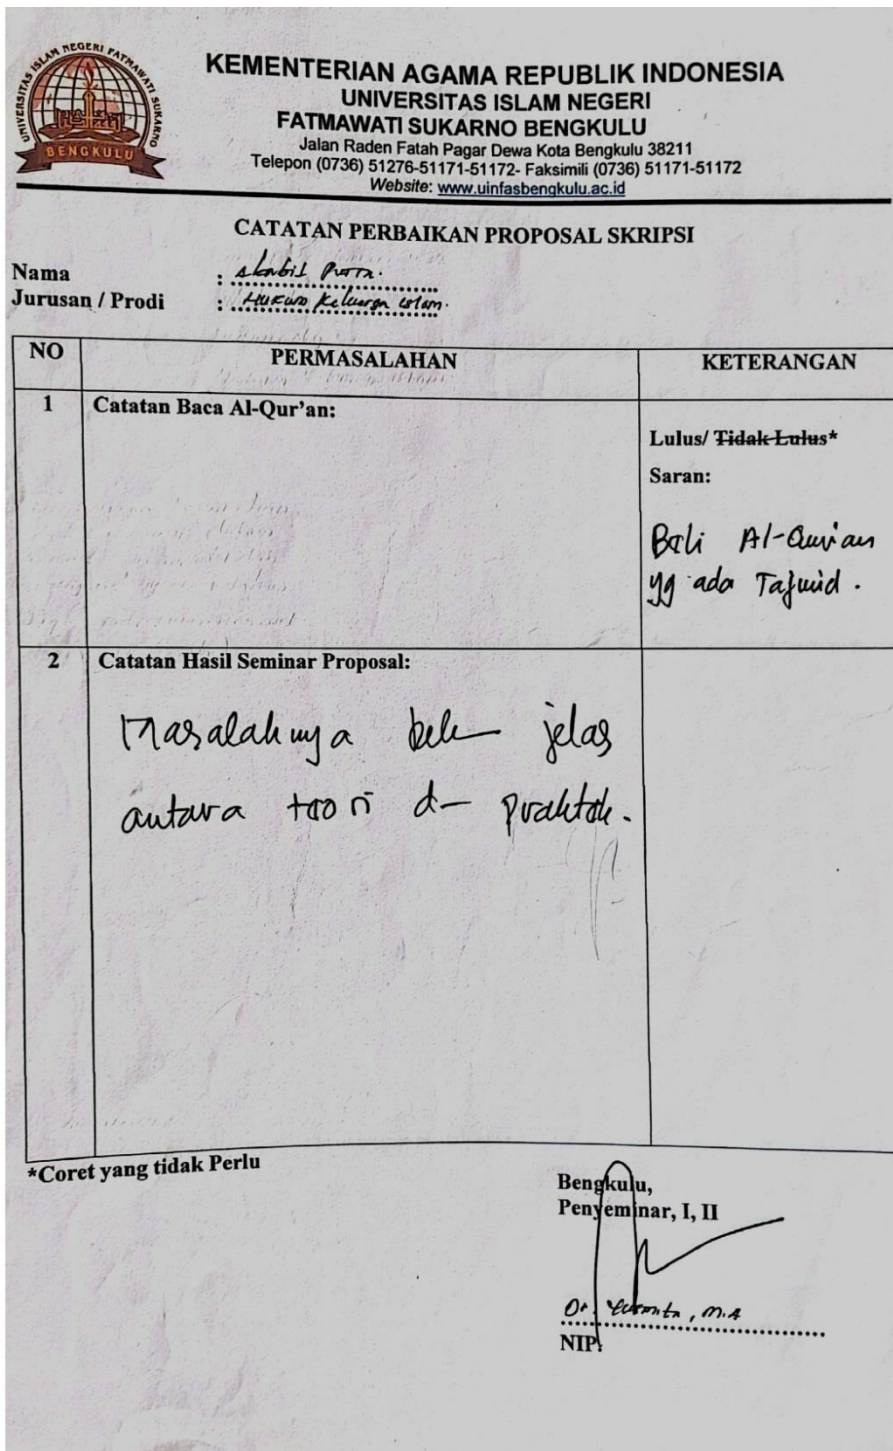 UNIVERSITAS ISLAM NEGERI FATMAWATI SUKARNO
BENGKULU
KEMENTERIAN AGAMA REPUBLIK INDONESIA
UNIVERSITAS ISLAM NEGERI
FATMAWATI SUKARNO BENGKULU
Jalan Raden Fatah Pagar Dewa Kota Bengkulu 38211
Telepon (0736) 51276-51171-51172- Faksimili (0736) 51171-51172
Website: www.uinfasbengkulu.ac.id
CATATAN PERBAIKAN PROPOSAL SKRIPSI
Nama :
Jurusan / Prodi : Hukum Keluarga Islam.
NO PERMASALAHAN KETERANGAN
1 Catatan Baca Al-Qur'an:
Lulus/ Tidak Lulus*
Saran:
Beli Al-Qur'an
yg ada Tajwid.
2 Catatan Hasil Seminar Proposal:
Masalahnya jelas
antara teori praktek.
*Coret yang tidak Perlu
Bengkulu,
Penyeminar, I, II
Dr. M.A
NIP.